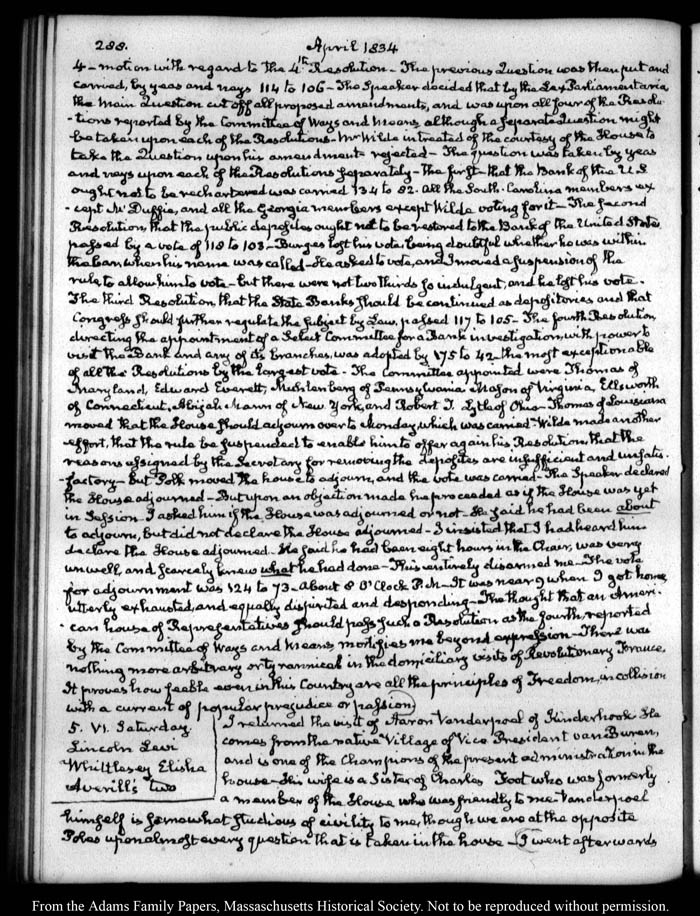 288.
April 1834
4 – motion with regard to the 4th Resolution – The previous Question was then put and
carried, by yeas and nays 114 to 106 – The Speaker decided that by the Lex Parliamentaria
the main Question cut off all proposed amendments, and was upon all four of the Resolu-
-tions reported by the Committee of Ways and Means, although a separate Question might
be taken upon each of the Resolutions – Mr Wilde intreated of the courtesy of the House to
take the Question upon his amendment – rejected – The question was taken by yeas
and nays upon each of the Resolutions separately – The first – that the Bank of the U.S
ought not to be rechartered was carried 134 to 82. All the South-Carolina members ex
-cept Mc Duffie, and all the Georgia members except Wilde voting for it – The second
Resolution, that the public deposites ought not to be restored to the Bank of the United States
passed by a vote of 118 to 103 – Burges lost his vote, being doubtful whether he was within
the bar when his name was called – He asked to vote, and I moved a suspension of the
rule, to allow him to vote – but there were not two thirds so indulgent, and he lost his vote.
The third Resolution, that the State Banks should be continued as depositories and that
Congress should further regulate the subject by Law, passed 117 to 105 – The fourth Resolution
directing the appointment of a Select Committee for a Bank investigation, with power to
visit the Bank and any of its branches, was adopted by 175 to 42 – the most exceptionable
of all the Resolutions by the largest vote. – The Committee appointed were Thomas of
Maryland, Edward Everett, Muhlenberg of Pennsylvania Mason of Virginia, Ellsworth
of Connecticut, Abijah Mann of New York, and Robert T. Lytle of Ohio – Thomas of Louisiana
moved that the House should adjourn over to Monday which was carried – Wilde made another
effort, that the rule be suspended to enable him to offer again his Resolution, that the
reasons assigned by the Secretary for removing the deposites are insufficient and unsatis.
-factory – but Polk moved the house to adjourn, and the vote was carried – The Speaker declared
the House adjourned – But upon an objection made he proceeded as if the House was yet
in Session. I asked him if the House was adjourned or not – He said he had been about
to adjourn, but did not declare the House adjourned – I insisted that I had heard him
declare the House adjourned – He said he had been eight hours in the Chair, was very
unwell, and scarcely knew what he had done – This entirely disarmed me – The vote
for adjournment was 124 to 73 – about 8 O'Clock P.M – It was near 9 when I got home,
utterly exhausted, and equally dispirited and desponding – The thought that an Ameri.
-can house of Representatives should pass such a Resolution as the fourth, reported
by the Committee of Ways and Means, mortifies me beyond expression – There was
nothing more arbitrary or tyrannical in the domiciliary visits of Revolutionary France.
It proves how feeble even in this Country are all the principles of Freedom, in collision
with a current of popular prejudice or passion
5. VI. Saturday.
Lincoln Levi
Whittlesey Elisha
Averill's two
I returned the visit of Aaron Vanderpoel of Kinderhook. He
comes from the native Village of Vice President van Buren,
and is one of the Champions of the present administration in the
house – His wife is a Sister of Charles Foot who was formerly
a member of the House who was friendly to me. Vanderpoel
himself is somewhat studious of civility to me, though we are at the opposite
Poles upon almost every question that is taken in the house – I went afterwards
From the Adams Family Papers, Massachusetts Historical Society. Not to be reproduced without permission.